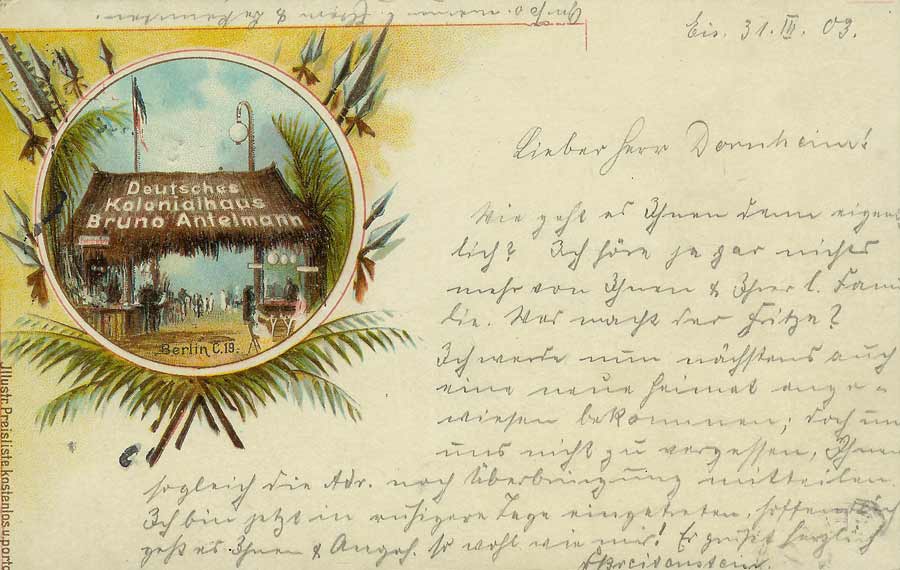 Eis. 31. III. 03.
Lieber Herr Dornheim!
Deutsches
Kolonialhaus
Bruno Antelmann
Berlin C.19.
Wie geht es Ihnen denn eigent
lich? Ich höre ja gar nichts
mehr von Ihnen & Ihrer l. Fami
lie. Was macht der Fritze?
Ich werde nun nächstens auch
eine neue Heimat ange-
wiesen bekommen; doch um
uns nicht zu vergessen, Ihnen
sogleich die Adr. nach Überbringung mitteilen.
Ich bin jetzt in ruhigere Tage eingetreten, hoffentlich
geht es Ihnen & Angeh. so wohl wie mir! Es grüßt herzlich
Breitenstein.
Jllustr. Preisliste kostenlos u. porto